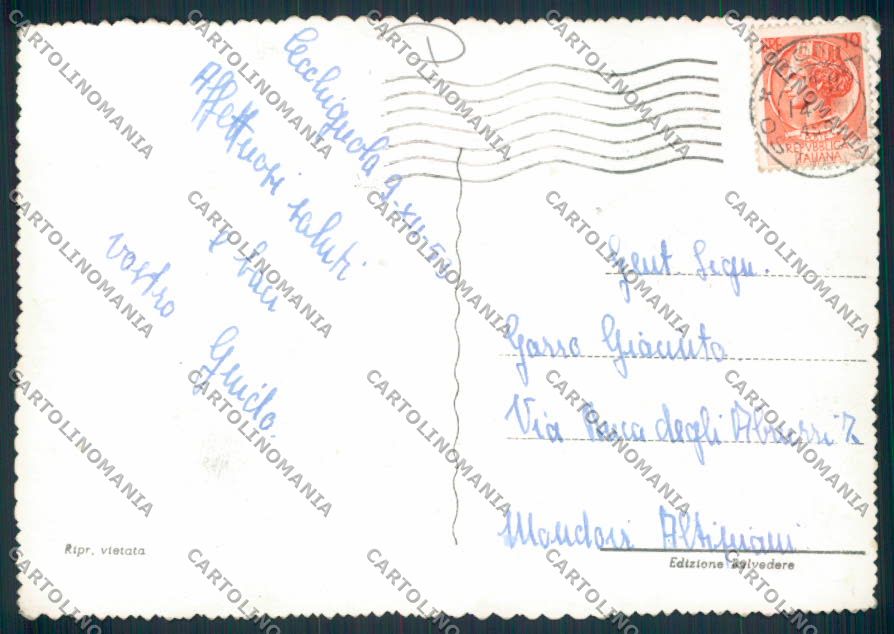 Cecchignola 9-XII-53
Affettuosi saluti
e baci
vostro
Guido.
Gent. Sign.
Garro Giacinto
Via Duca degli Abruzzi 7
Mondovì
Ripr. vietata
Edizione Belvedere
10
REPVBBLICA
ITALIANA
CARTOLINOMANIA